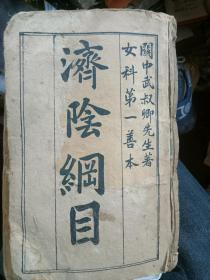 關中武叔卿先生著
女科第一善本
濟陰綱目